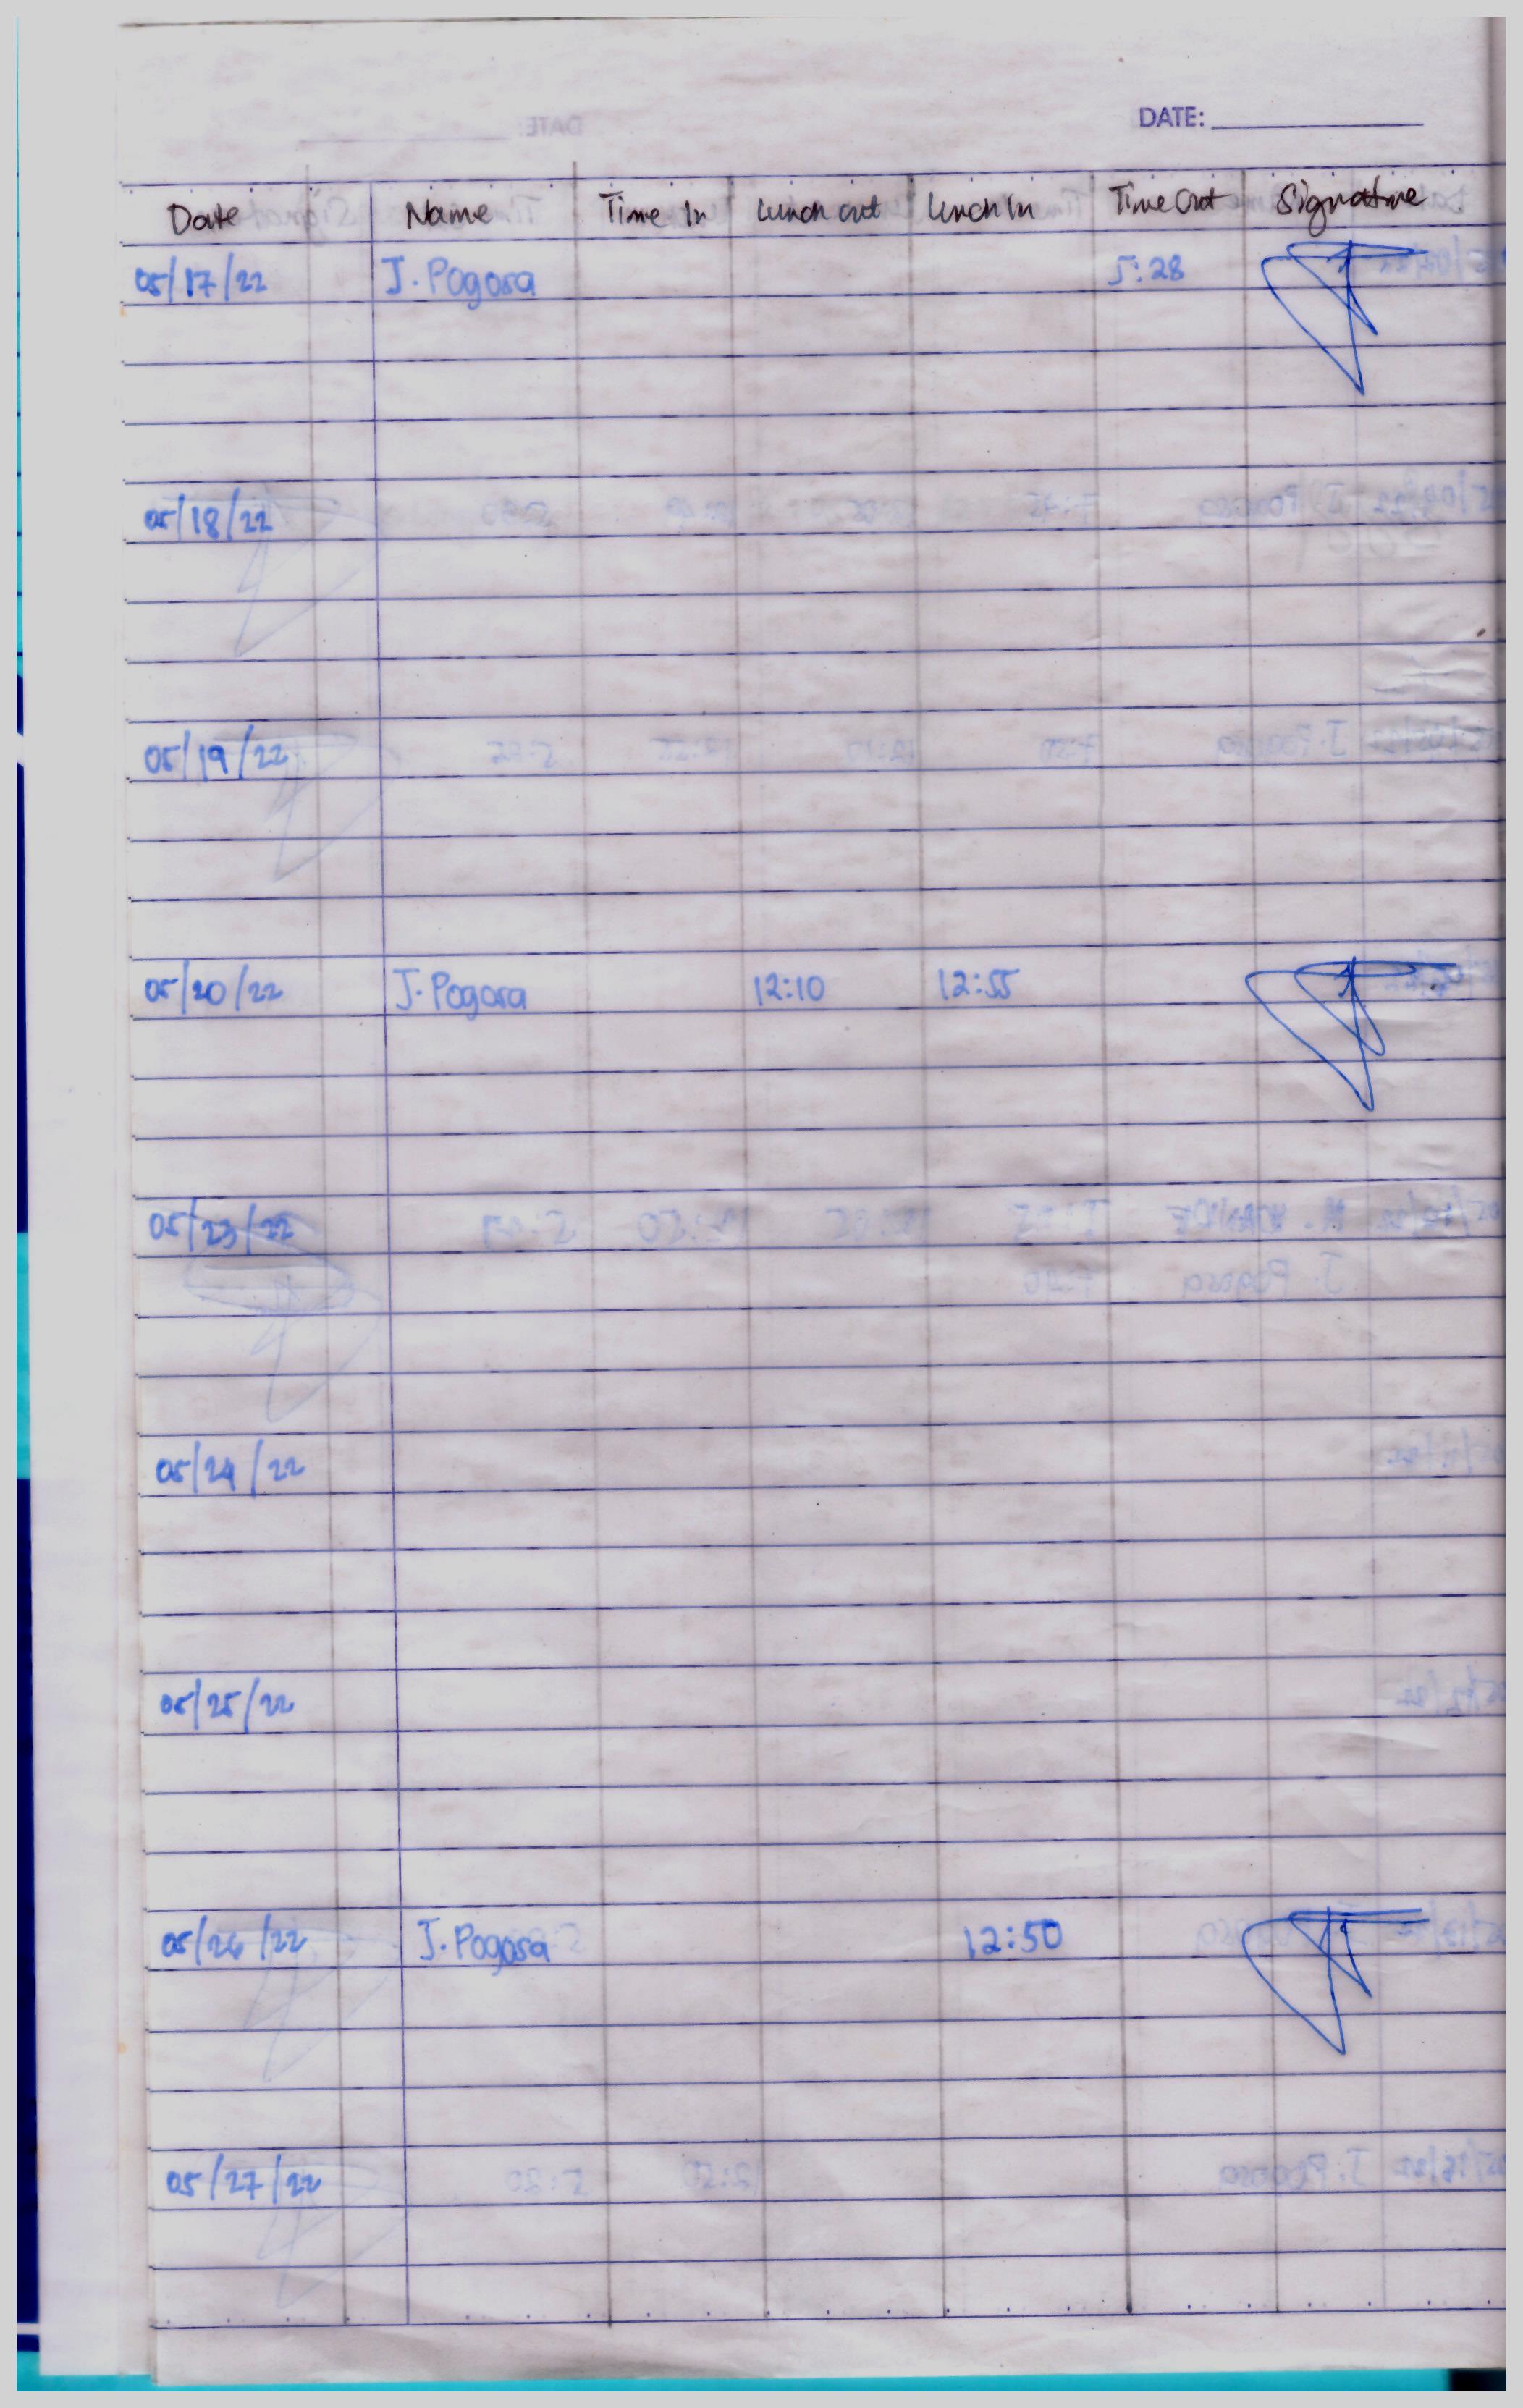 DATE:
Date Name Time In Lunch out Lunch In Time Out Signature
05/17/22 J. Pogosa 5:28
05/18/22
05/19/22
05/20/22 J. Pogosa 12:10 12:55
05/23/22
05/24/22
05/25/22
05/26/22 J. Pogosa 12:50
05/27/22